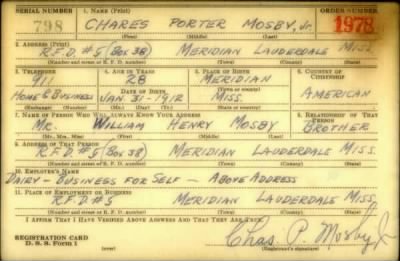 SERIAL NUMBER 1. NAME (Print) ORDER NUMBER
798 CHARES PORTER MOSBY, Jr. 1978
(First) (Middle) (Last)
2. ADDRESS (Print)
R.F.D. #5 (Box 38) MERIDIAN LAUDERDALE MISS.
(Number and street or R. F. D. number) (Town) (County) (State)
3. TELEPHONE 4. AGE IN YEARS 5. PLACE OF BIRTH 6. COUNTRY OF CITIZENSHIP
911 28 MERIDIAN
DATE OF BIRTH (Town or county)
HOME & BUSINESS JAN 31 - 1912 MISS. AMERICAN
(Exchange) (Number) (Mo.) (Day) (Yr.) (State or country)
7. NAME OF PERSON WHO WILL ALWAYS KNOW YOUR ADDRESS 8. RELATIONSHIP OF THAT PERSON
MR. WILLIAM HENRY MOSBY BROTHER
(Mr., Mrs., Miss) (First) (Middle) (Last)
9. ADDRESS OF THAT PERSON
R.F.D. #5 (Box 38) MERIDIAN LAUDERDALE MISS.
(Number and street or R. F. D. number) (Town) (County) (State)
10. EMPLOYER'S NAME
DAIRY - BUSINESS FOR SELF - ABOVE ADDRESS
11. PLACE OF EMPLOYMENT OR BUSINESS
R.F.D. #5 MERIDIAN LAUDERDALE MISS.
(Number and street or R. F. D. number) (Town) (County) (State)
I AFFIRM THAT I HAVE VERIFIED ABOVE ANSWERS AND THAT THEY ARE TRUE.
REGISTRATION CARD
D. S. S. Form 1 Chas. P. Mosby Jr
(Registrant's signature)